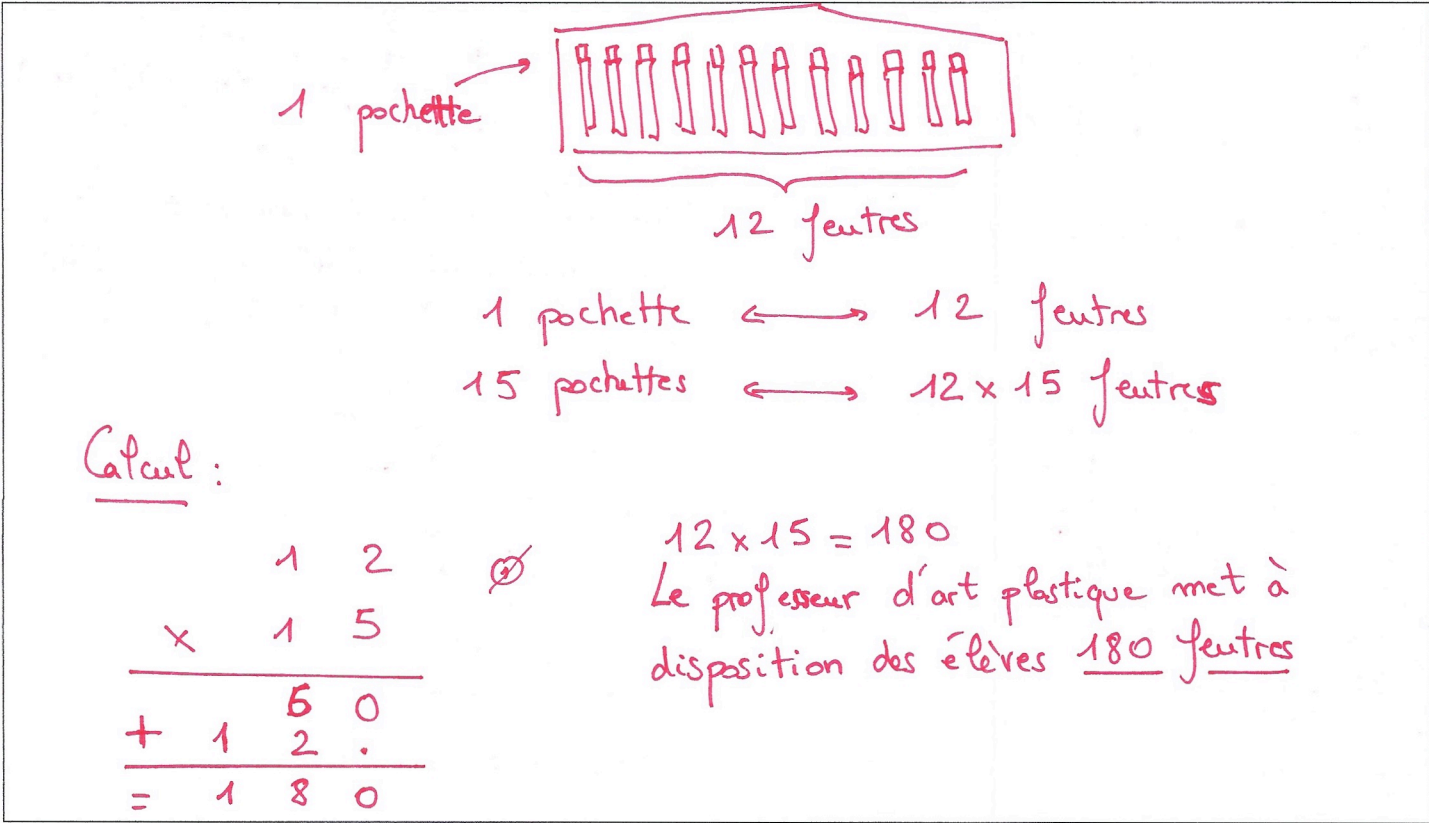 1 pochette
12 feutres
1 pochette ⟷ 12 feutres
15 pochettes ⟷ 12 x 15 feutres
Calcul :
1 2
x 1 5
6 0
+ 1 2 .
= 1 8 0
12 x 15 = 180
Le professeur d'art plastique met à
disposition des élèves 180 feutres